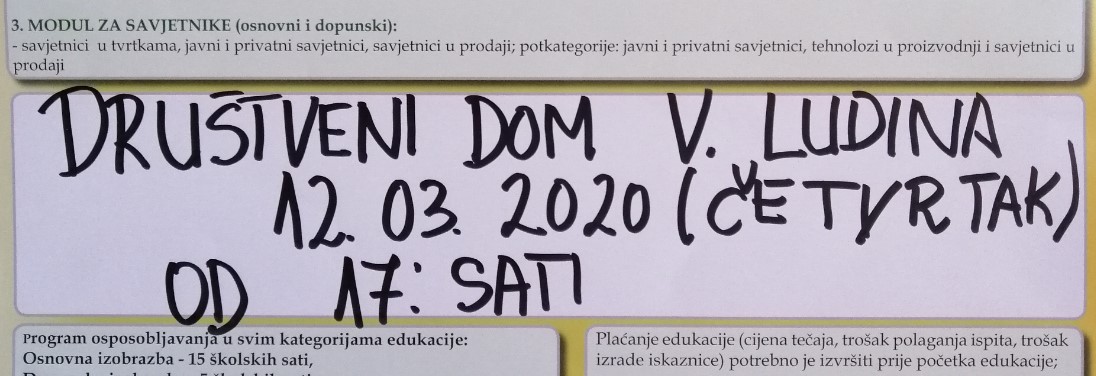 3. MODUL ZA SAVJETNIKE (osnovni i dopunski):
- savjetnici u tvrtkama, javni i privatni savjetnici, savjetnici u prodaji; potkategorije: javni i privatni savjetnici, tehnolozi u proizvodnji i savjetnici u
prodaji
DRUŠTVENI DOM V. LUDINA
12. 03. 2020 (ČETVRTAK)
OD 17: SATI
Program osposobljavanja u svim kategorijama edukacije:
Osnovna izobrazba - 15 školskih sati,
Plaćanje edukacije (cijena tečaja, trošak polaganja ispita, trošak
izrade iskaznice) potrebno je izvršiti prije početka edukacije;